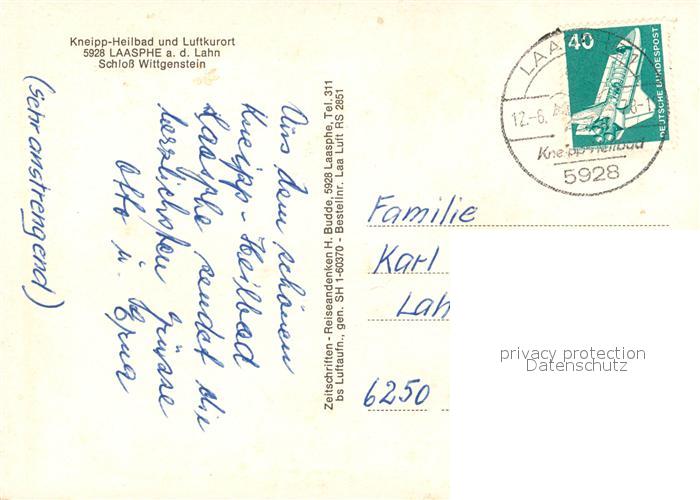 Kneipp-Heilbad und Luftkurort
5928 LAASPHE a. d. Lahn
Schloß Wittgenstein
Aus dem schönen
Kneipp-Heilbad
Laasphe sendet die
herzlichsten Grüsse
Otto u. Erna
(sehr anstrengend)
Zeitschriften - Reiseandenken H. Budde, 5928 Laasphe, Tel. 311
bs Luftaufn., gen. SH 1-60370 - Bestellnr. Laa Luft RS 2851
40
DEUTSCHE BUNDESPOST
12.-6.
Kneipp-Heilbad
5928
Familie
Karl
Lah
6250
privacy protection
Datenschutz